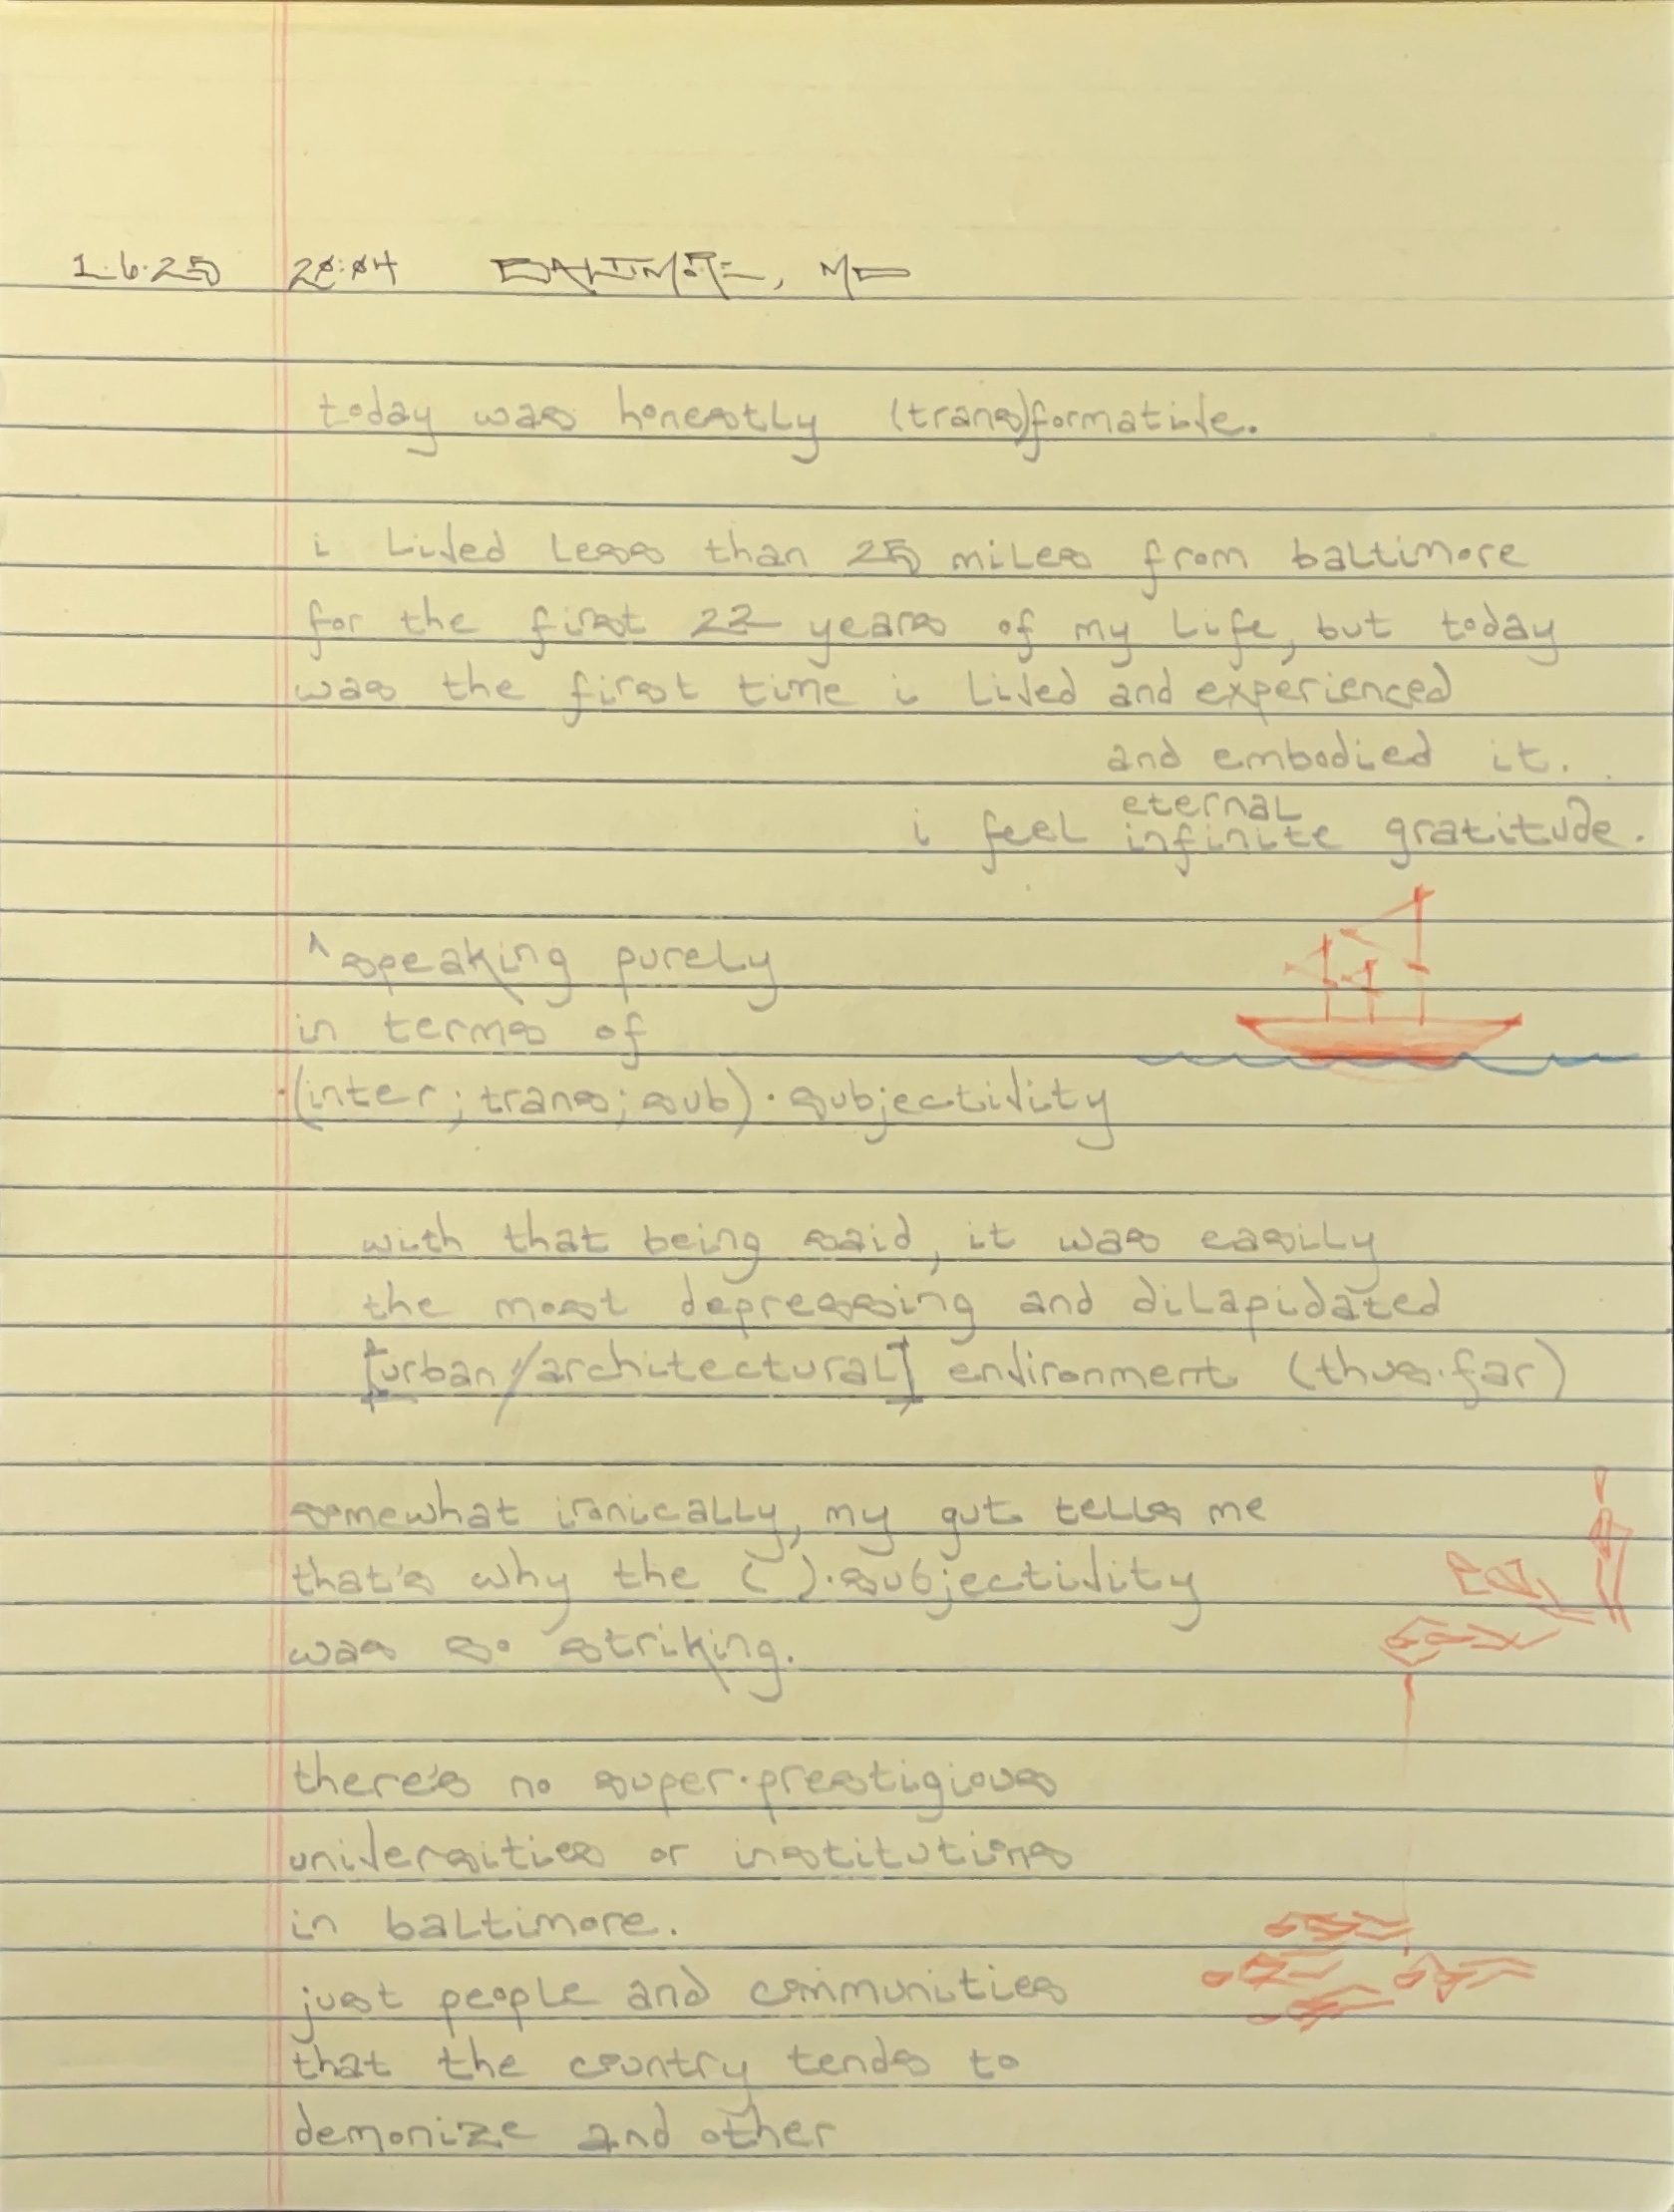 1.6.25 20:04 BALTIMORE, MD
today was honestly (trans)formative.
i lived less than 25 miles from baltimore
for the first 22 years of my life, but today
was the first time i lived and experienced
and embodied it.
eternal
i feel infinite gratitude.
^ speaking purely
in terms of
·(inter; trans; sub)·subjectivity
with that being said, it was easily
the most depressing and dilapidated
[urban/architectural] environment (thus·far)
somewhat ironically, my gut tells me
that's why the ( )·subjectivity
was so striking.
there's no super·prestigious
universities or institutions
in baltimore.
just people and communities
that the country tends to
demonize and other